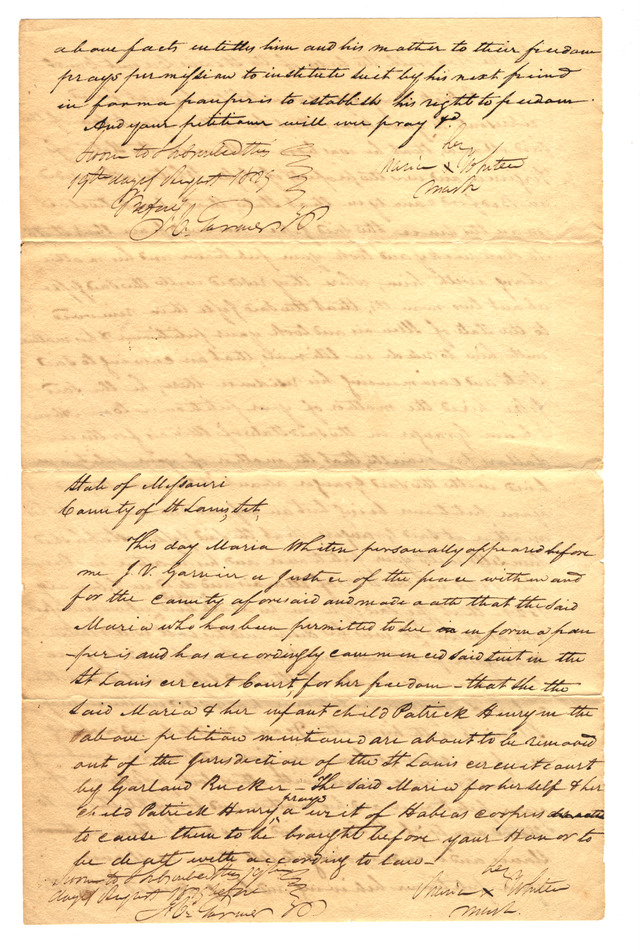 above facts entitles him and his mother to their freedom
prays permission to institute suit by his next friend
in forma pauperis to establish his right to freedom.
And your petitioner will ever pray &c
Sworn to & subscribed this
19th day of August 1829
Before
her
Maria x Whiten
mark
Garnier JP
State of Missouri
County of St Louis, Sct,
This day Maria Whiten personally appeared before
me J. V. Garnier a Justice of the peace within and
for the County aforesaid and made oath that the said
Maria who has been permitted to sue in in forma pau
-peris and has accordingly commenced said suit in the
St Louis circuit Court, for her freedom - that she the
said Maria & her infant child Patrick Henry in the
above petition mentioned are about to be removed
out of the Jurisdiction of the St Louis circuit court
by Garland Rucker - The said Maria for herself & her
child Patrick Henry prays a writ of Habeas corpus
to cause them to be braught before your Honor to
be dealt with according to law -
Sworn to & subscribed this 19th
day of August before
her
Maria x Whiten
mark.
Garnier JP